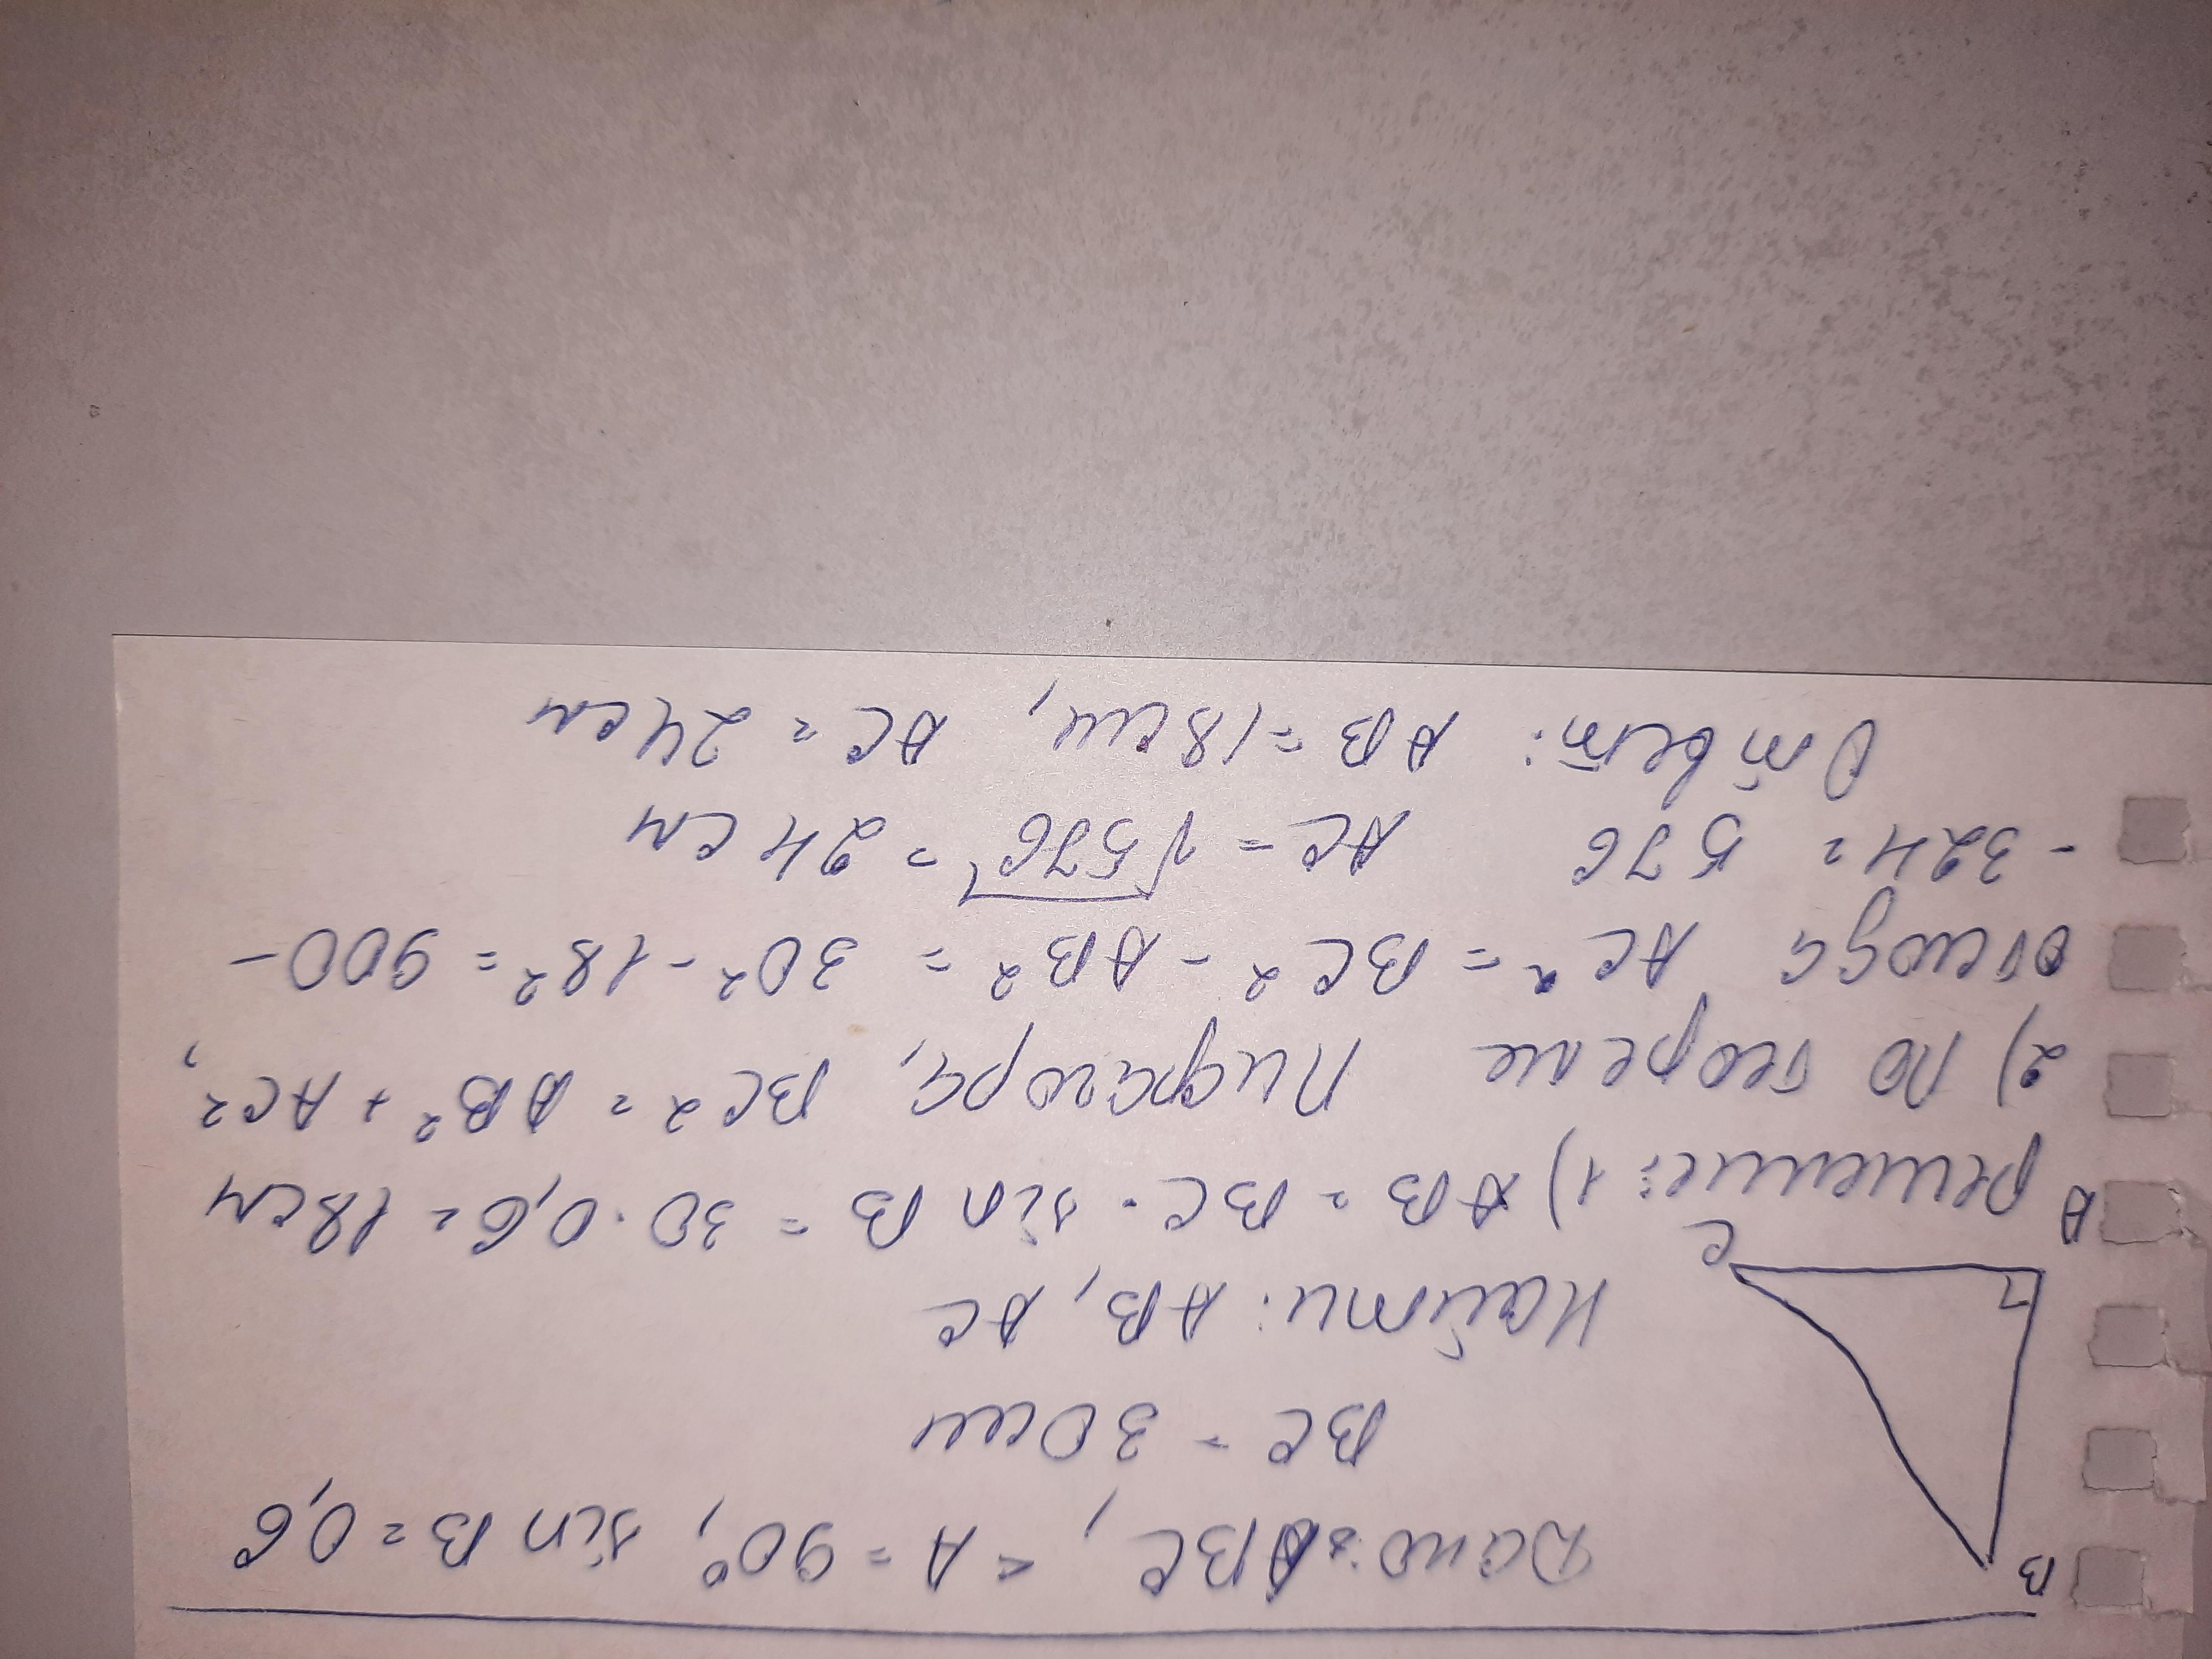 B
Дано: ABC, < A = 90°, sin B = 0,6
BC = 30 см
Найти: AB, AC
C
A
решение: 1) AB = BC · sin B = 30 · 0,6 = 18 см
2) по теореме Пифагора, BC² = AB² + AC²,
отсюда AC² = BC² - AB² = 30² - 18² = 900 -
- 324 = 576 AC = √576 = 24 см
Ответ: AB = 18 см, AC = 24 см